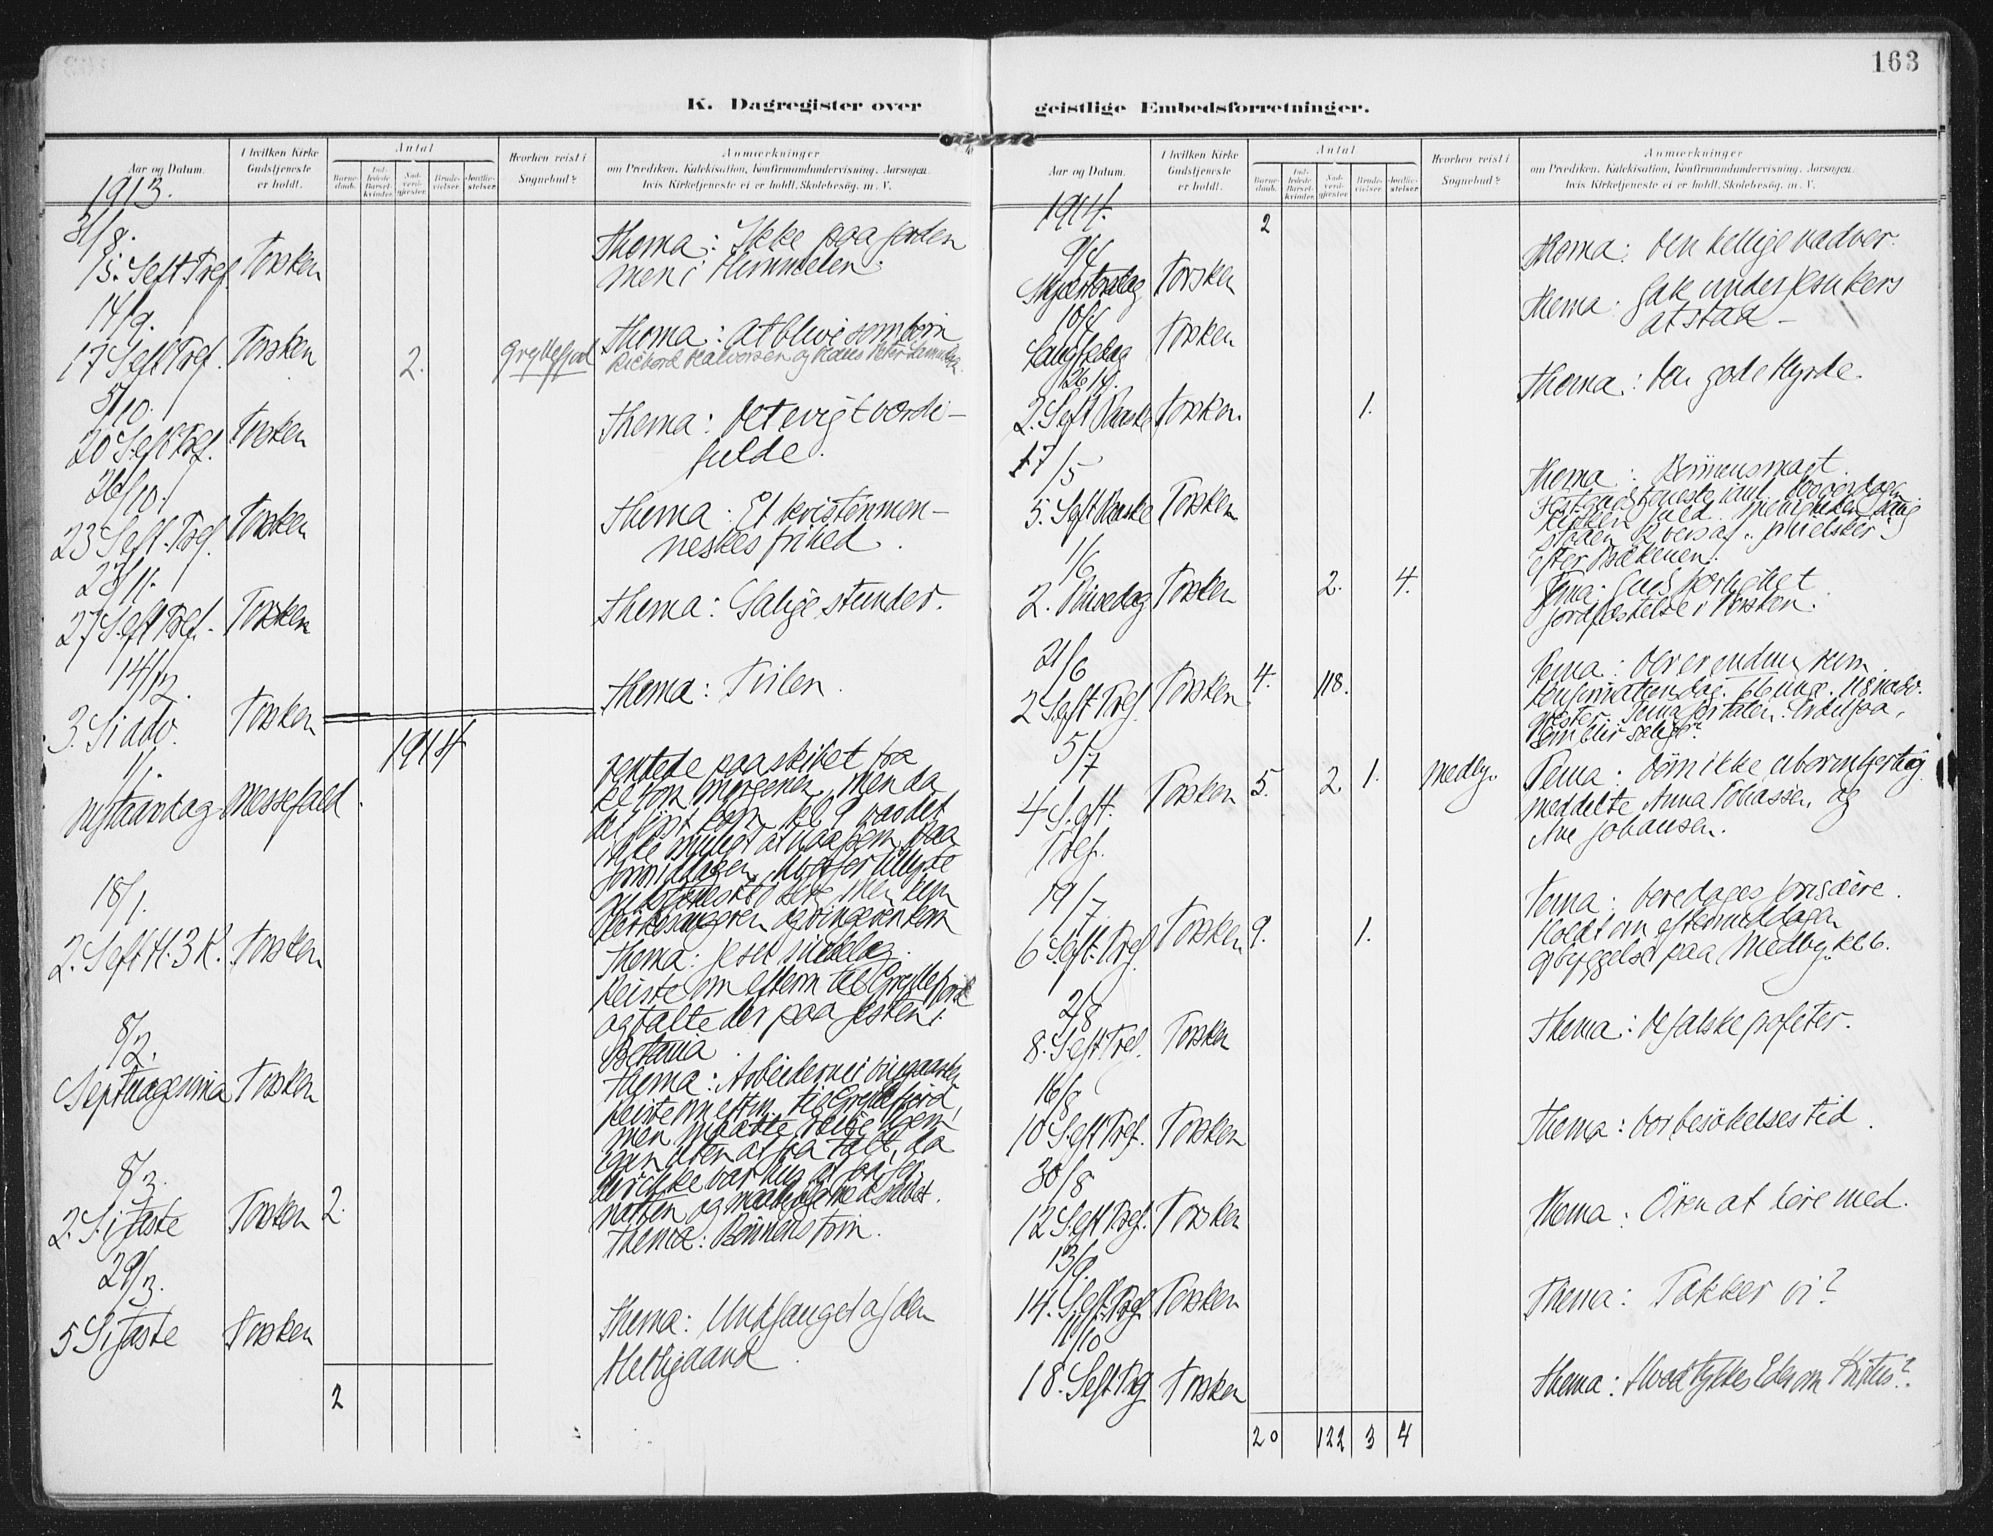 163
K. Dagregister over
geistlige Embedsforretninger.
Aar og Datum.
I hvilken Kirke Gudstjeneste er holdt.
Antal
Barnedaab.
Indledede Barselkvinder.
Nadverdgjester.
Brudevielser.
Jordfæstelser.
Hvorhen reist i Sognebud?
Anmærkninger
om Prædiken, Katekisation, Konfirmandundervisning, Aarsagen,
hvis Kirketjeneste ei er holdt, Skolebesøg, m. V.
1913.
31/8.
15. S eft Tref. Torsken Thema: Ikke paa jorden
men i Himmelen.
14/9.
17 S eft Tref. Torsken 2. Gryllefjord Thema: At blive som børn
5/10.
20 S eft Tref. Torsken Thema: Det evigt værdi-
fulde.
26/10.
23 S eft Tref. Torsken Thema: Et kristenmen-
neskes frihed.
23/11.
27 S eft Tref. Torsken Thema: Salige stunder.
14/12.
3. S i adv. Torsken Thema: Tvilen.
1914
1/1.
Nytaarsdag Messefald. ventede paa skibet fra
kl. 7 om morgenen, men da
det først kom kl 9 var det
ikke muligt at naa frem paa
formiddagen, hvorfor
men kun
kirkesangeren og ringeren kom
18/1.
2. S eft H. 3 K. Torsken Thema:
Reiste om efterm til Gryllefjord
og talte der paa festen i
Betania.
8/2.
Septuagesima Torsken Thema: Arbeiderne i vingaarden
Reiste om efterm. til Gryllefjord,
men maatte reise hjem
igjen uten at faa talt, da
der ikke var hus at faa for
natten og
8/3.
2. S. i faste Torsken 2. Thema: Bønnens trin.
29/3.
5 S i faste Torsken Thema: Undfanget af den
Helligaand.
2
Aar og Datum.
I hvilken Kirke Gudstjeneste er holdt.
Antal
Barnedaab.
Indledede Barselkvinder.
Nadverdgjester.
Brudevielser.
Jordfæstelser.
Hvorhen reist i Sognebud?
Anmærkninger
om Prædiken, Katekisation, Konfirmandundervisning, Aarsagen,
hvis Kirketjeneste ei er holdt, Skolebesøg, m. V.
1914. 2
9/4
Skjærtorsdag Torsken Thema: Den hellige nadver.
10/4
Langfredag Torsken Thema: Gak under korsets
at staa -
26/4.
2. S eft Paaske Torsken. 1. Thema: Den gode Hyrde.
17/5
5. S eft Paaske Torsken Thema: Bønnens magt.
Kirken fuld. Menigheden sang
staaende 2 vers af "Ja vi elsker"
efter Prækenen.
1/6
2. Pinsedag Torsken 2. 4. Tema: Guds kjærlighet
Jordfæstelse i Torsken.
21/6
2 S. eft. Tref. Torsken 4. 118. Tema: Der er endnu rum
Konfirmationsdag. 66 unge. 118 nadv.
gjester.
5/7
4 S. eft. Tref. Torsken 5. 2. 1. Medby. Tema: Døm ikke ubarmhjertig
meddelte Anna Tobiassen og
Ane Johansen.
19/7
6 S. eft. Tref. Torsken 9. 1. Tema:
Holdt om eftermiddagen
opbyggelse paa Medby kl. 6.
2/8
8. S. eft Tref. Torsken Thema: De falske profeter.
16/8
10 S. eft Tref. Torsken Thema: Vor besøkelsestid.
30/8
12 S. eft Tref. Torsken Thema: Øren at høre med.
13/9
14. S. eft. Tref. Torsken Thema: Takker vi?
11/10
18. S eft Tref Torsken Thema: Hvad tykkes Eder om Kristus?
20 122 3 4